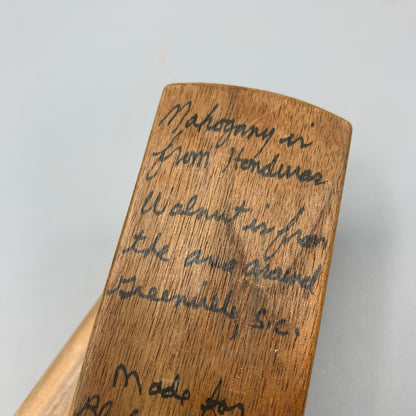 Mahogany is
from Honduras
Walnut is from
the area around
Greenville, S.C.
Made for